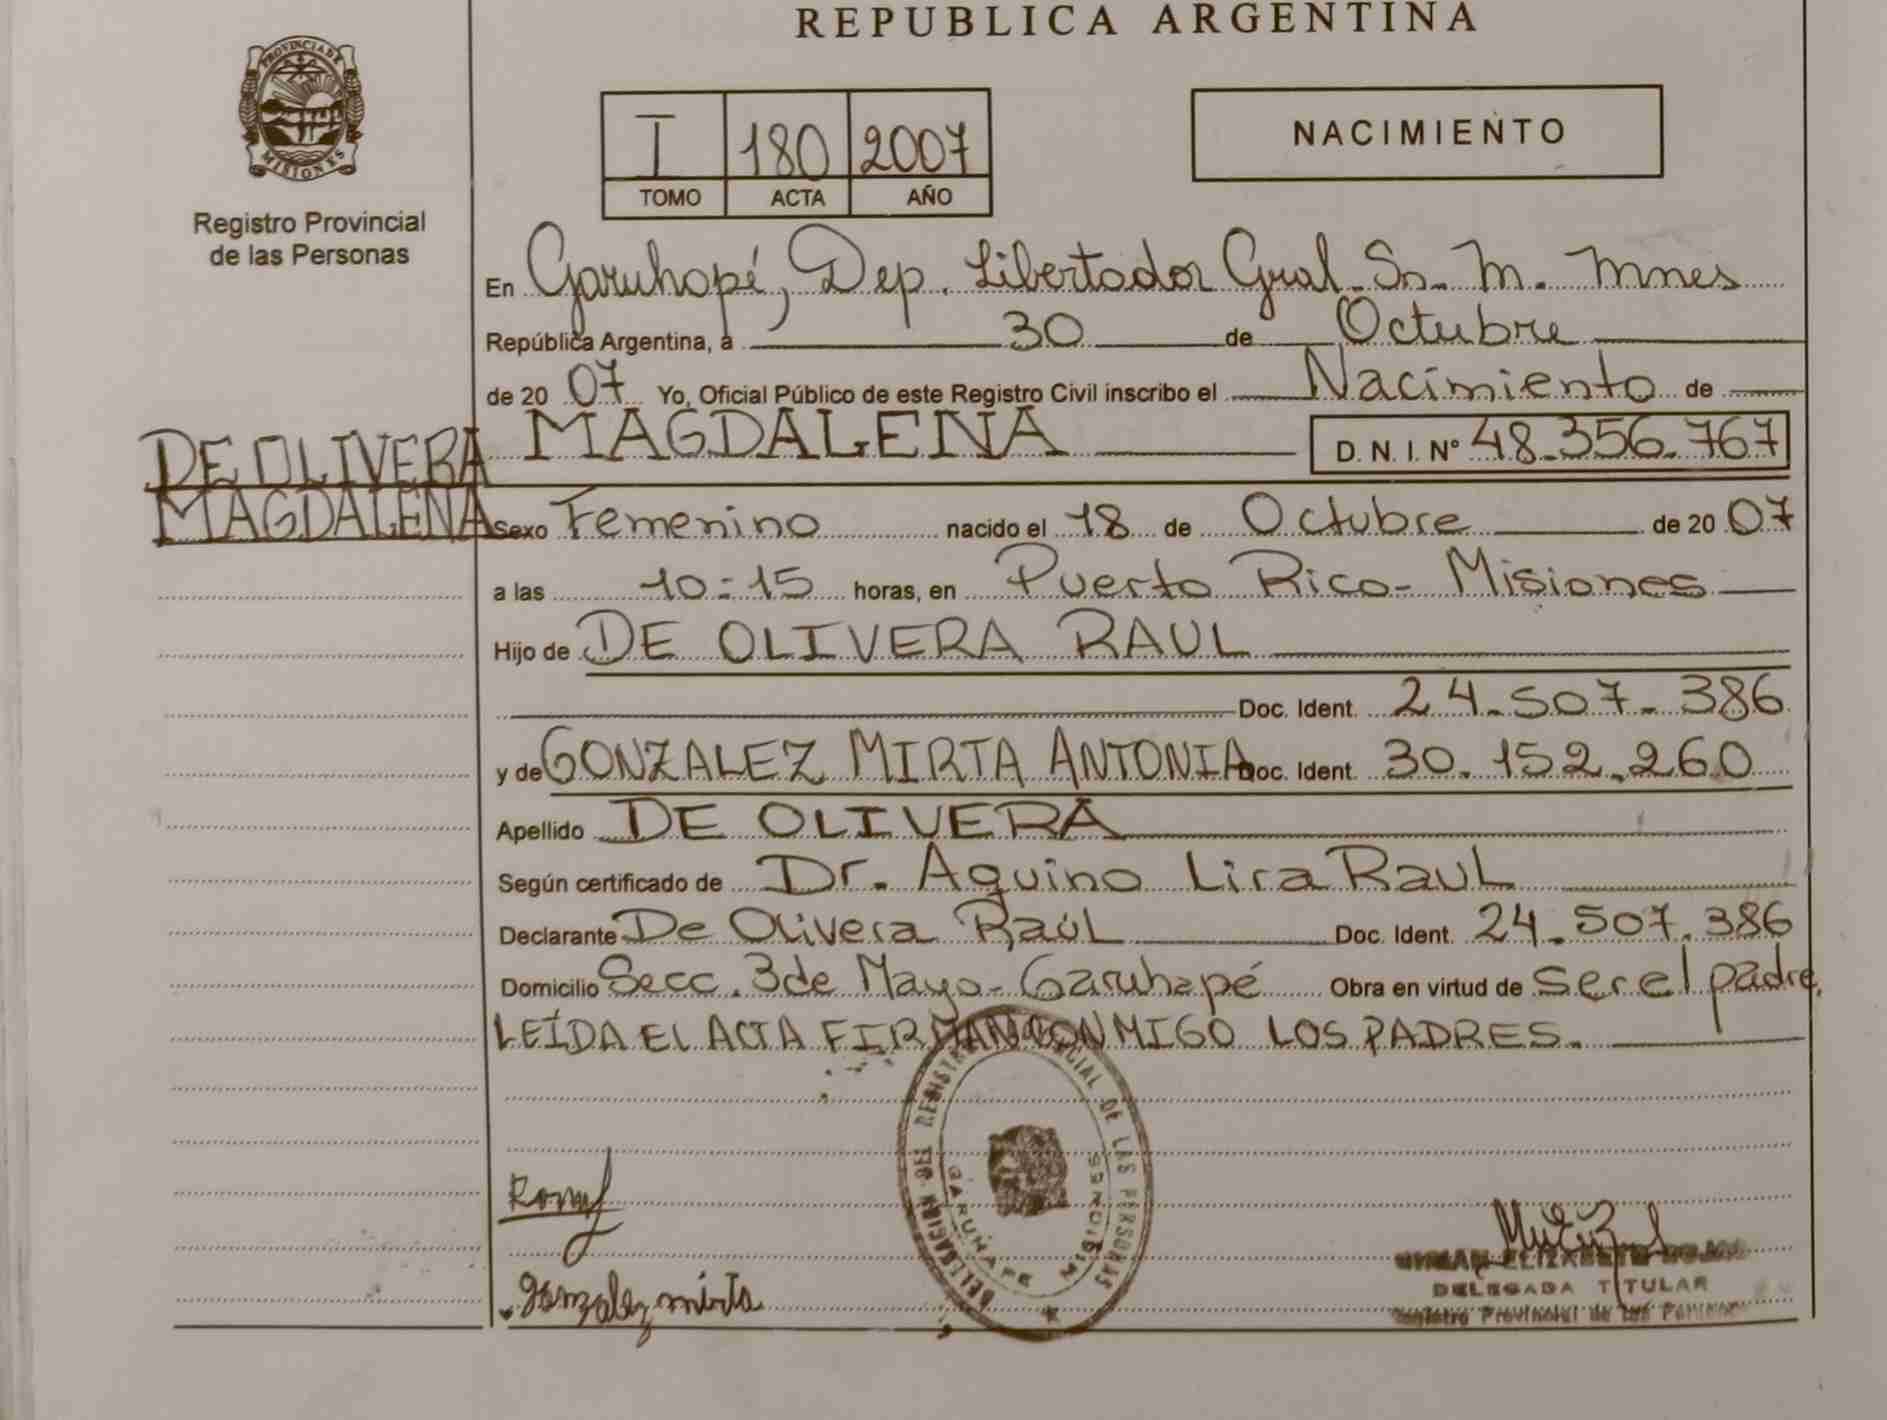 REPUBLICA ARGENTINA
PROVINCIA DE
MISIONES
Registro Provincial
de las Personas
I 180 2007
TOMO ACTA AÑO
NACIMIENTO
En Garuhapé, Dep. Libertador Gral. Sn. M. Mnes
República Argentina, a 30 de Octubre
de 2007 Yo, Oficial Público de este Registro Civil inscribo el Nacimiento de
DE OLIVERA
MAGDALENA
MAGDALENA D. N. I. Nº 48.356.767
Sexo Femenino nacido el 18 de Octubre de 2007
a las 10:15 horas, en Puerto Rico- Misiones
Hijo de DE OLIVERA RAUL
Doc. Ident. 24.507.386
y de GONZALEZ MIRTA ANTONIA Doc. Ident. 30.152.260
Apellido DE OLIVERA
Según certificado de Dr. Aquino Lira Raul
Declarante De Olivera Raúl Doc. Ident. 24.507.386
Domicilio Secc. 3 de Mayo- Garuhapé Obra en virtud de ser el padre,
LEÍDA EL ACTA FIRMAN CONMIGO LOS PADRES.
DELEGACION DEL REGISTRO PROVINCIAL DE LAS PERSONAS
GARUHAPE MISIONES
Gonzalez mirta
ELIZABETH
DELEGADA TITULAR
Registro Provincial de las Personas